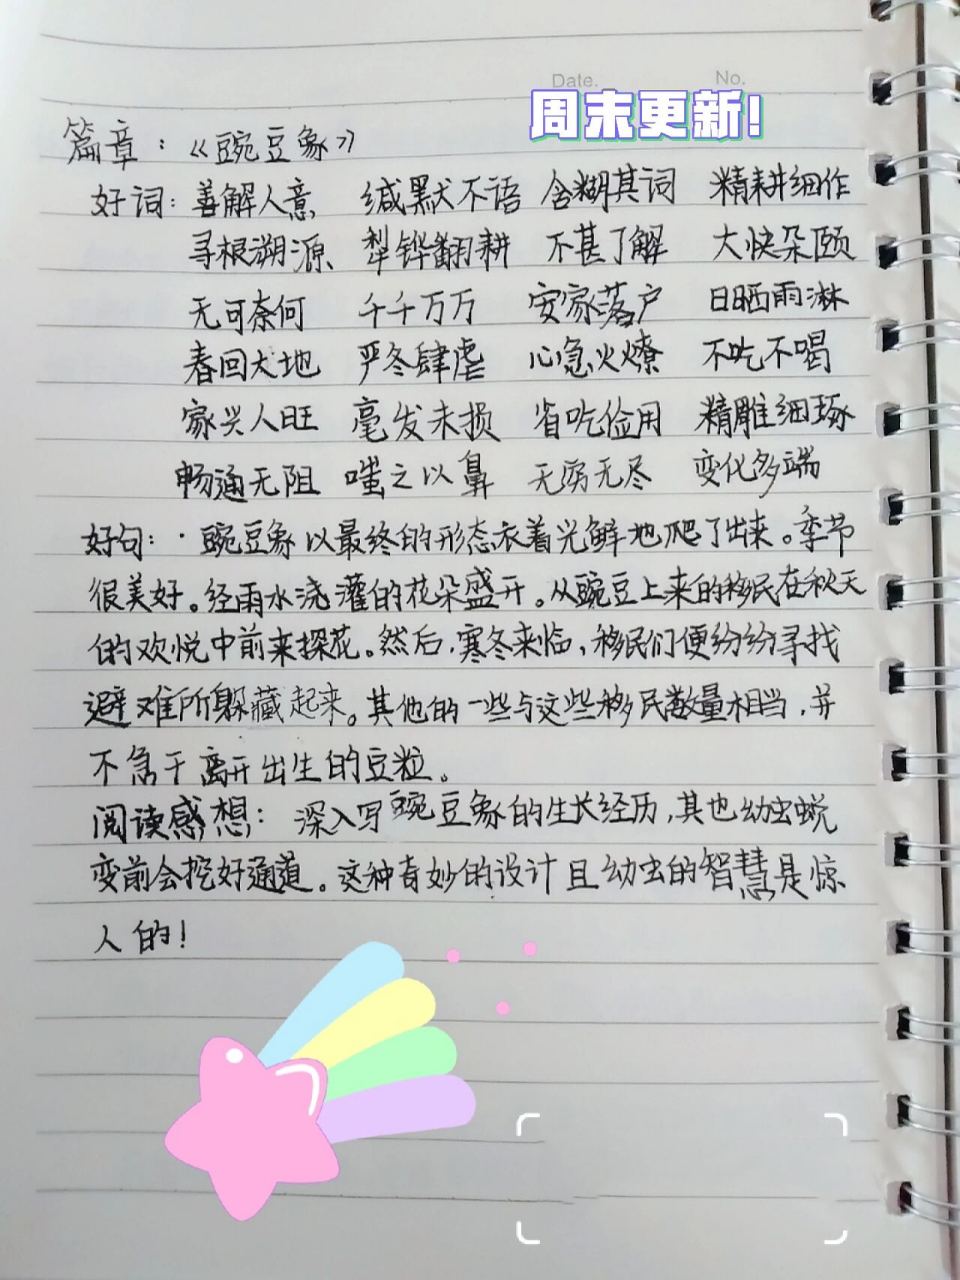 Date.
No.
周末更新!
篇章：《豌豆象》
好词：善解人意 缄默不语 含糊其词 精耕细作
寻根溯源 犁铧翻耕 不甚了解 大快朵颐
无可奈何 千千万万 安家落户 日晒雨淋
春回大地 严冬肆虐 心急火燎 不吃不喝
家兴人旺 毫发未损 省吃俭用 精雕细琢
畅通无阻 嗤之以鼻 无穷无尽 变化多端
好句：·豌豆象以最终的形态衣着光鲜地爬了出来。季节
很美好。经雨水浇灌的花朵盛开。从豌豆上来的移民在秋天
的欢悦中前来探花。然后，寒冬来临，移民们便纷纷寻找
避难所躲藏起来。其他的一些与这些移民数量相当，并
不急于离开出生的豆粒。
阅读感想：深入写豌豆象的生长经历，其也幼虫蜕
变前会挖好通道。这种奇妙的设计且幼虫的智慧是惊
人的！